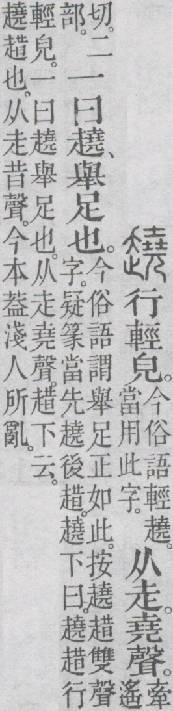 趬行輕皃。今俗語輕趬。當用此字。从走。堯聲。牽遙
切。二部。一曰趬、舉足也。今俗語謂舉足正如此。按趬趞雙聲字。疑篆當先趬後趞。趬下曰。趬趞行
輕皃。一曰趬舉足也。从走堯聲。趞下云。趬趞也。从走昔聲。今本葢淺人所亂。